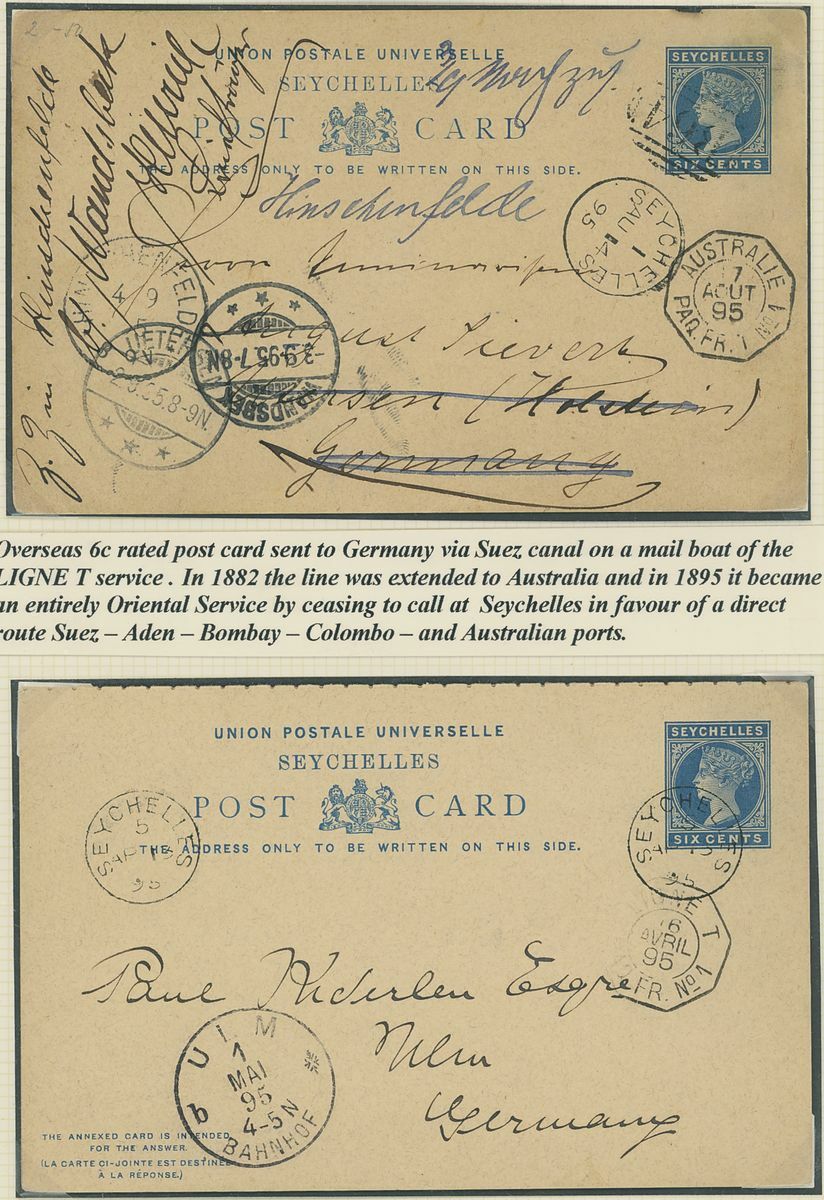 2-50
UNION POSTALE UNIVERSELLE
SEYCHELLES
POST CARD
THE ADDRESS ONLY TO BE WRITTEN ON THIS SIDE.
SEYCHELLES
SIX CENTS
Hinschenfelde
Wandsbek
Hinschenfelde
August Sievert
(Holstein)
Germany
SEYCHELLES
1
AU 14
95
AUSTRALIE
17
AOUT
95
PAQ. FR. T No 1
4 9
WANDSBEK
-3.9.95.7-8N.
UETERSEN
8-9N.
Overseas 6c rated post card sent to Germany via Suez canal on a mail boat of the
LIGNE T service . In 1882 the line was extended to Australia and in 1895 it became
an entirely Oriental Service by ceasing to call at Seychelles in favour of a direct
route Suez – Aden – Bombay – Colombo – and Australian ports.
UNION POSTALE UNIVERSELLE
SEYCHELLES
POST CARD
THE ADDRESS ONLY TO BE WRITTEN ON THIS SIDE.
SEYCHELLES
SIX CENTS
SEYCHELLES
5
AP 15
95
SEYCHELLES
95
LIGNE T
16
AVRIL
95
FR. No 1
Paul Kiderlen Esqre
Ulm
Germany
ULM
1
MAI
95
4-5 N
b BAHNHOF
THE ANNEXED CARD IS INTENDED
FOR THE ANSWER.
(LA CARTE CI-JOINTE EST DESTINÉE
À LA RÉPONSE.)